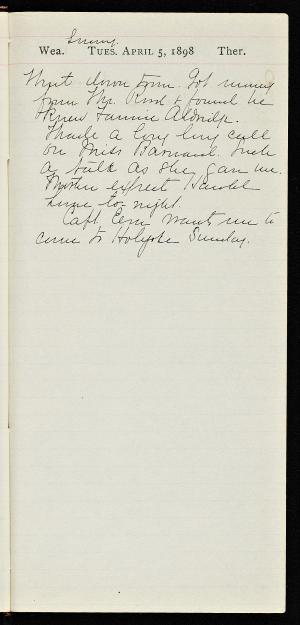 Sunny.
Wea. TUES. APRIL 5, 1898 Ther.
Went down town. Got money
from Mr. & found he
knew Fannie
Made a long long call
on Miss Barnard. Such
a talk as she gave me.
expect
home to-night.
Capt. wants me to
come to Holyoke Sunday.